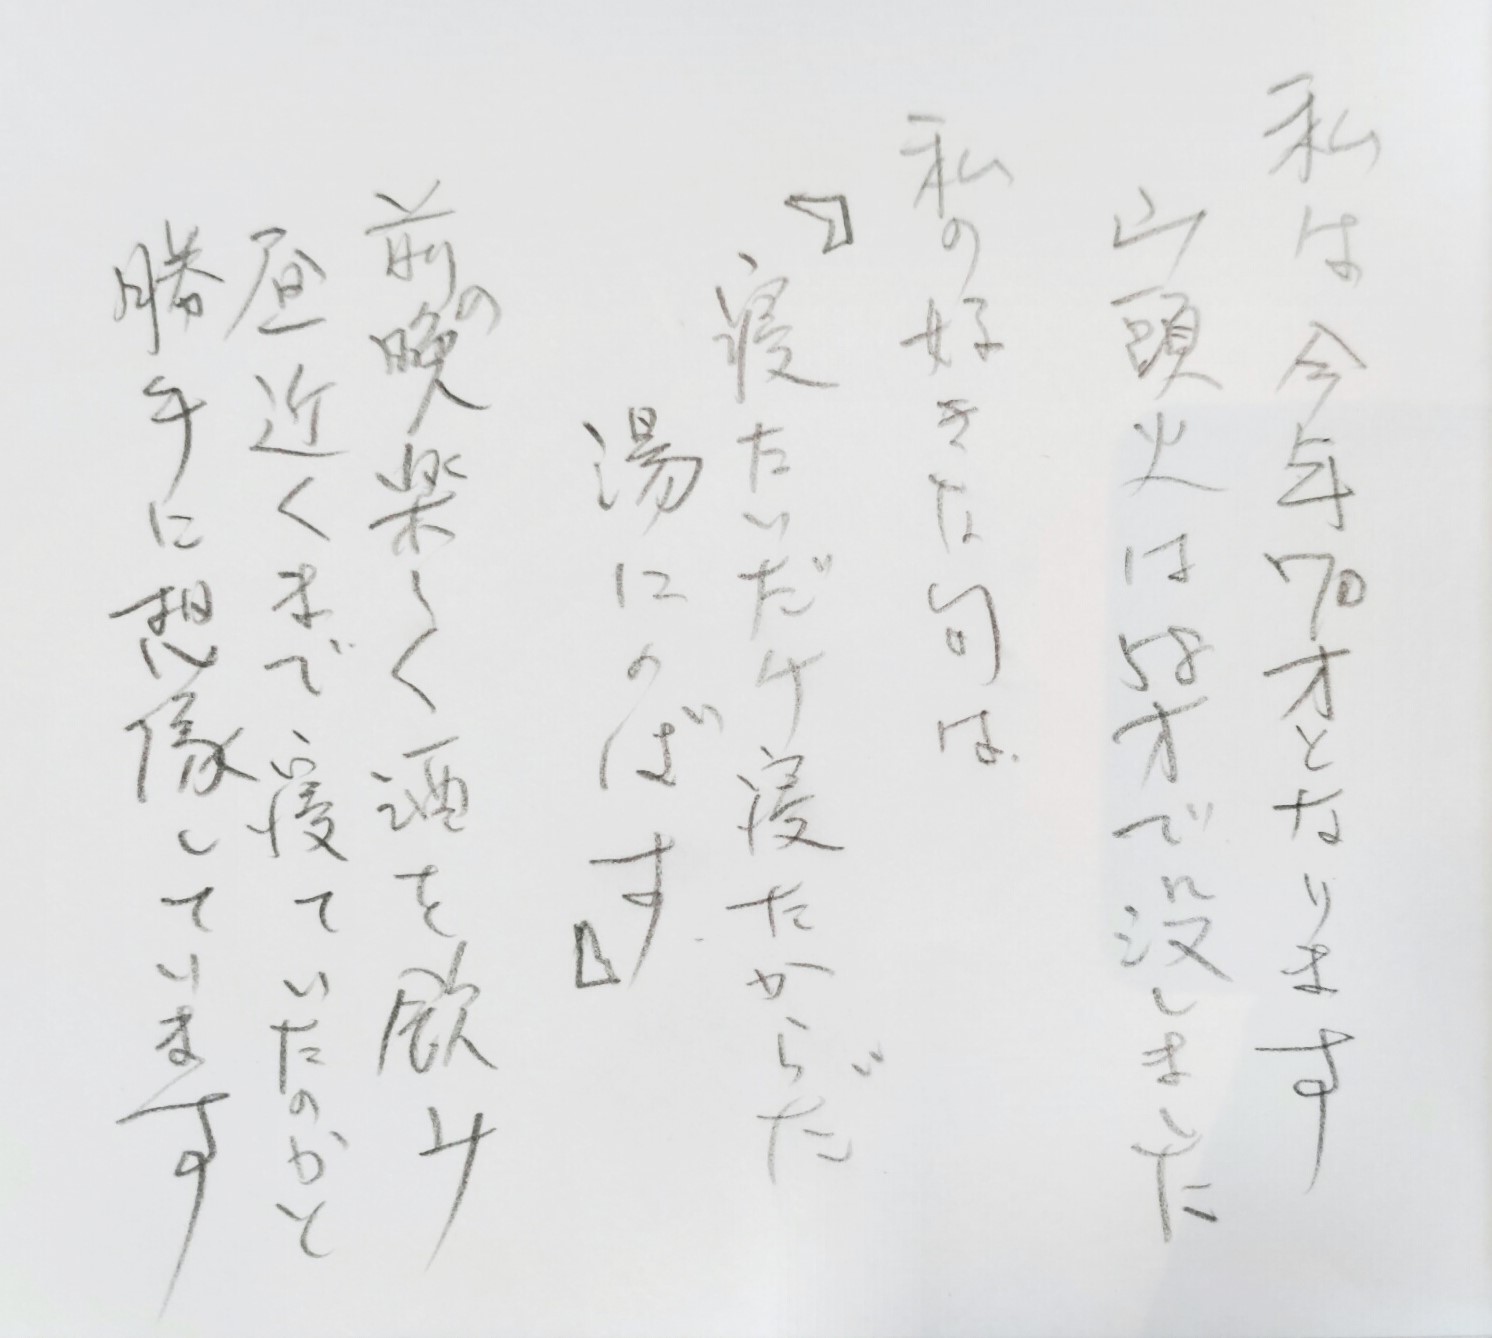 私は今年70才となります
山頭火は58才で没しました
私の好きな句は
『寝たいだけ寝たからだ
湯にのばす』
前の晩楽しく酒を飲み
昼近くまで寝ていたのかと
勝手に想像しています